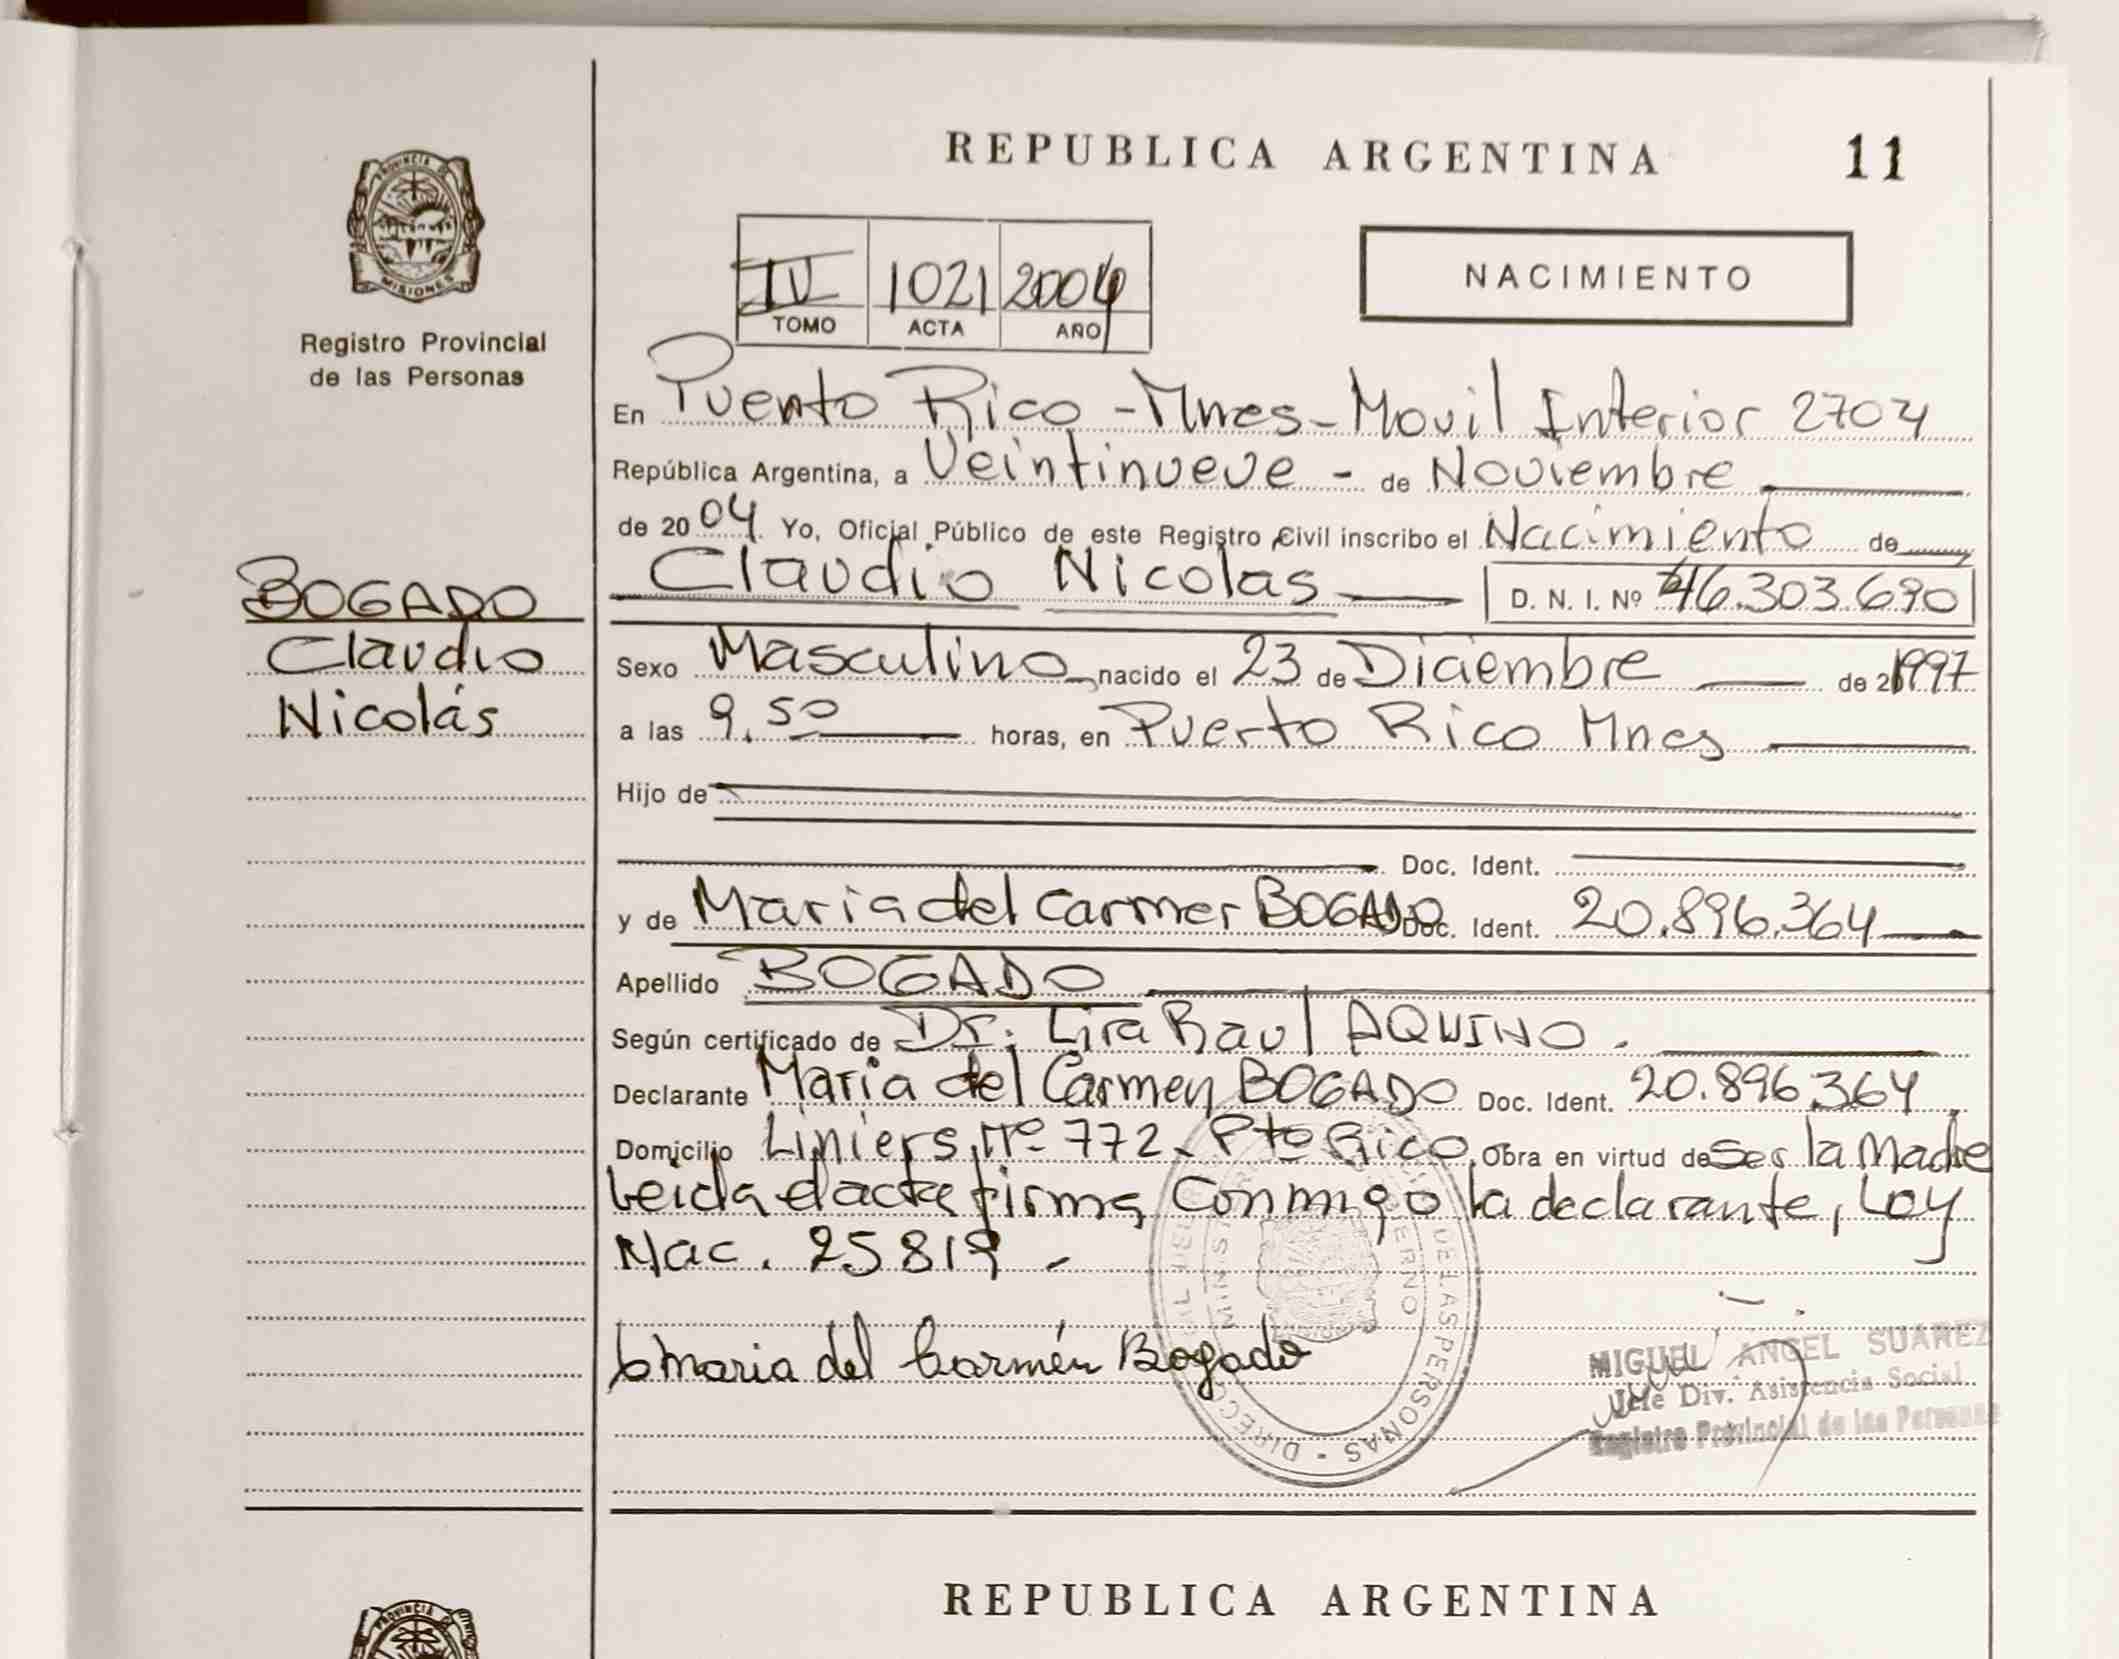 REPUBLICA ARGENTINA
11
PROVINCIA DE
MISIONES
Registro Provincial
de las Personas
IV 1021 2004
TOMO ACTA AÑO
NACIMIENTO
En Puerto Rico - Mnes - Movil Interior 2704
República Argentina, a Veintinueve - de Noviembre
de 2004 Yo, Oficial Público de este Registro Civil inscribo el Nacimiento de
Claudio Nicolas D. N. I. Nº 46.303.690
BOGADO
Claudio
Nicolás
Sexo Masculino nacido el 23 de Diciembre de 1997
a las 9.50 horas, en Puerto Rico Mnes
Hijo de
Doc. Ident.
y de Maria del Carmen BOGADO Doc. Ident. 20.896.364
Apellido BOGADO
Según certificado de Dr. Lira Raul AQUINO.
Declarante Maria del Carmen BOGADO Doc. Ident. 20.896.364
Domicilio Liniers Nº 772 - Pto Rico, Obra en virtud de Ser la Madre
Leida el acta firma Conmigo la declarante, Ley
Nac. 25819 -
Maria del Carmén Bogado
MINIS ERNO
DIREC DE LAS PERSONAS
MIGUEL ANGEL SUAREZ
Jefe Div. Asistencia Social
Registro Provincial de las Personas
REPUBLICA ARGENTINA
PROVINCIA